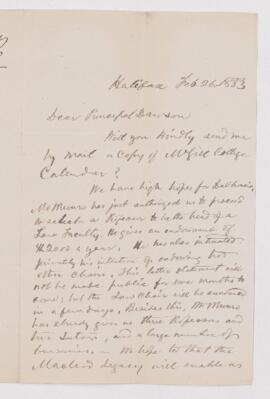 Halifax Feb 26 1883
Dear Principal Dawson
Will you kindly send me
by mail a copy of McGill College
Calendar?
We have high hopes for Dalhousie.
Mr Munro has just authorized us to proceed
to select a Professor to be the head of a
Law Faculty. He gives an endowment of
$2000 a year. He has also intimated
privately his intention of endowing two
other Chairs. This latter statement will
not be made public for two months to
come; but the Law Chair will be announced
in a few days. Besides this, Mr Munro
has already given us three Professors and
two Tutors, and a large number of
bursaries. — We hope to that the
Macleod legacy will enable us